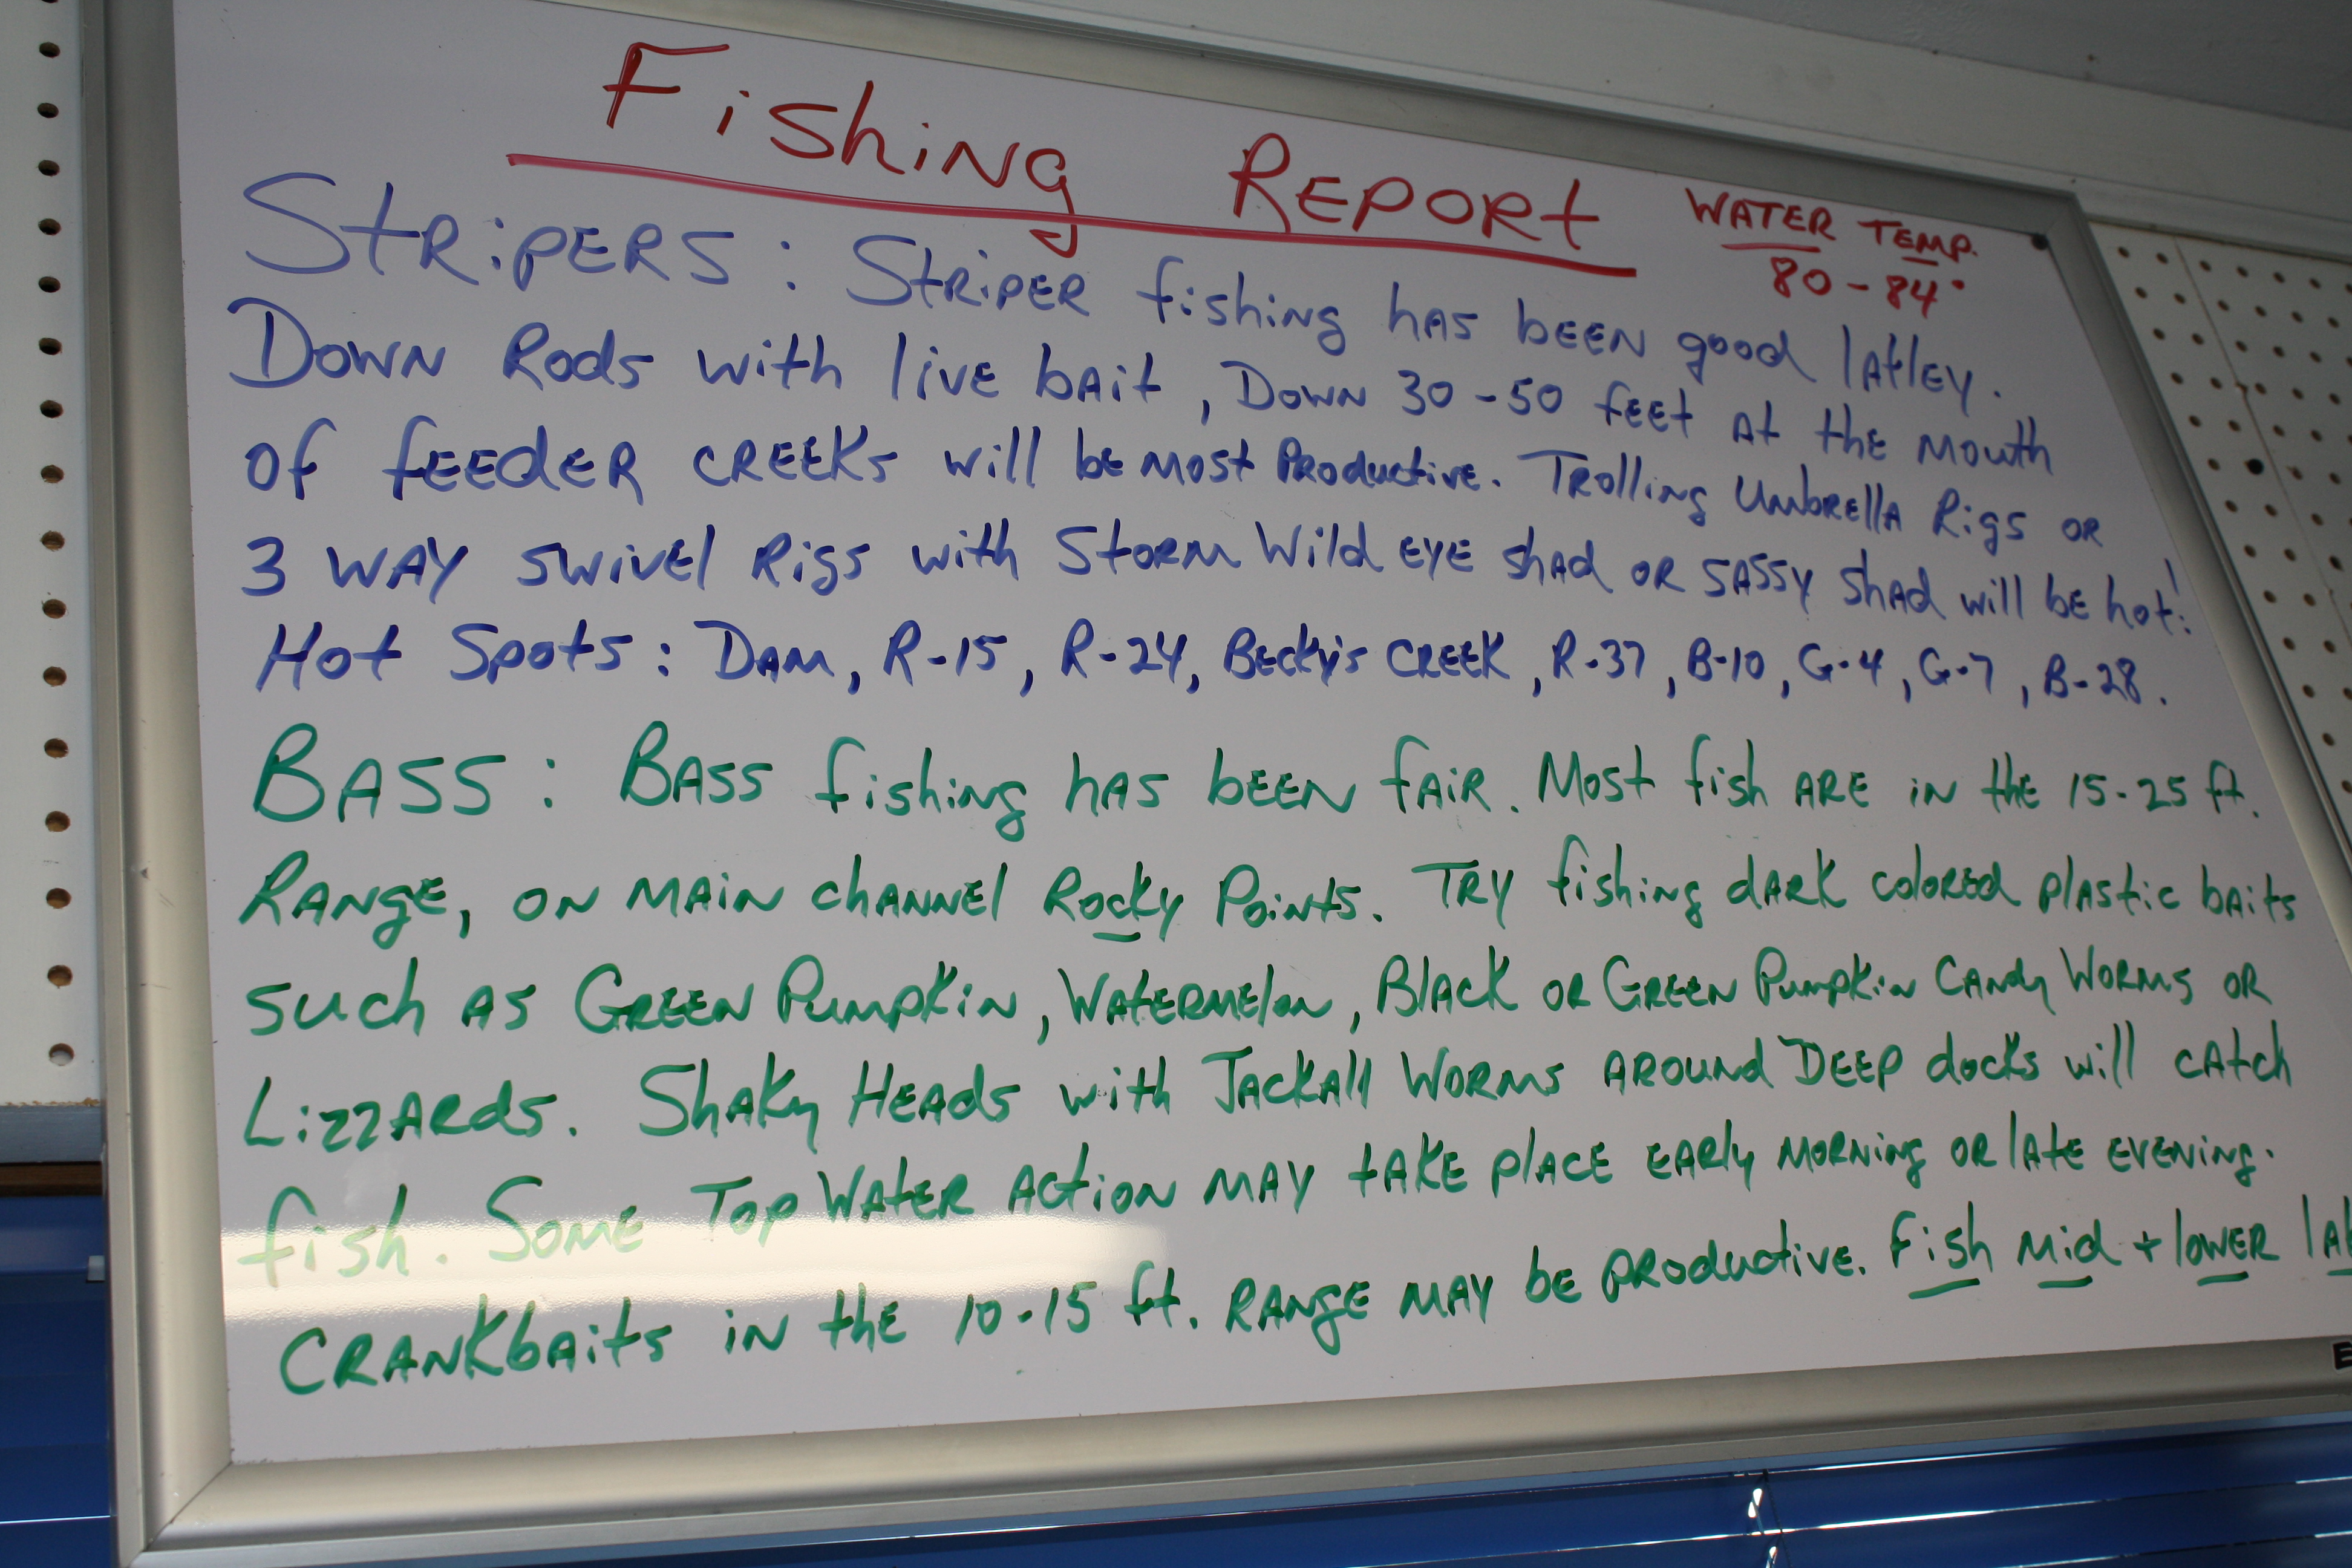 Fishing Report
Water Temp.
80-84°
Stripers: Striper fishing has been good latley.
Down Rods with live bait, Down 30-50 feet at the mouth
of feeder creeks will be most Productive. Trolling Umbrella Rigs or
3 way swivel Rigs with Storm Wild eye shad or sassy shad will be hot!
Hot Spots: Dam, R-15, R-24, Becky's Creek, R-37, B-10, G-4, G-7, B-28.
Bass: Bass fishing has been fair. Most fish are in the 15-25 ft.
Range, on main channel Rocky Points. Try fishing dark colored plastic baits
such as Green Pumpkin, Watermelon, Black or Green Pumpkin Candy Worms or
Lizzards. Shaky Heads with Jackall Worms around Deep docks will catch
fish. Some Top Water Action may take place early morning or late evening.
Crankbaits in the 10-15 ft. range may be productive. Fish mid + lower